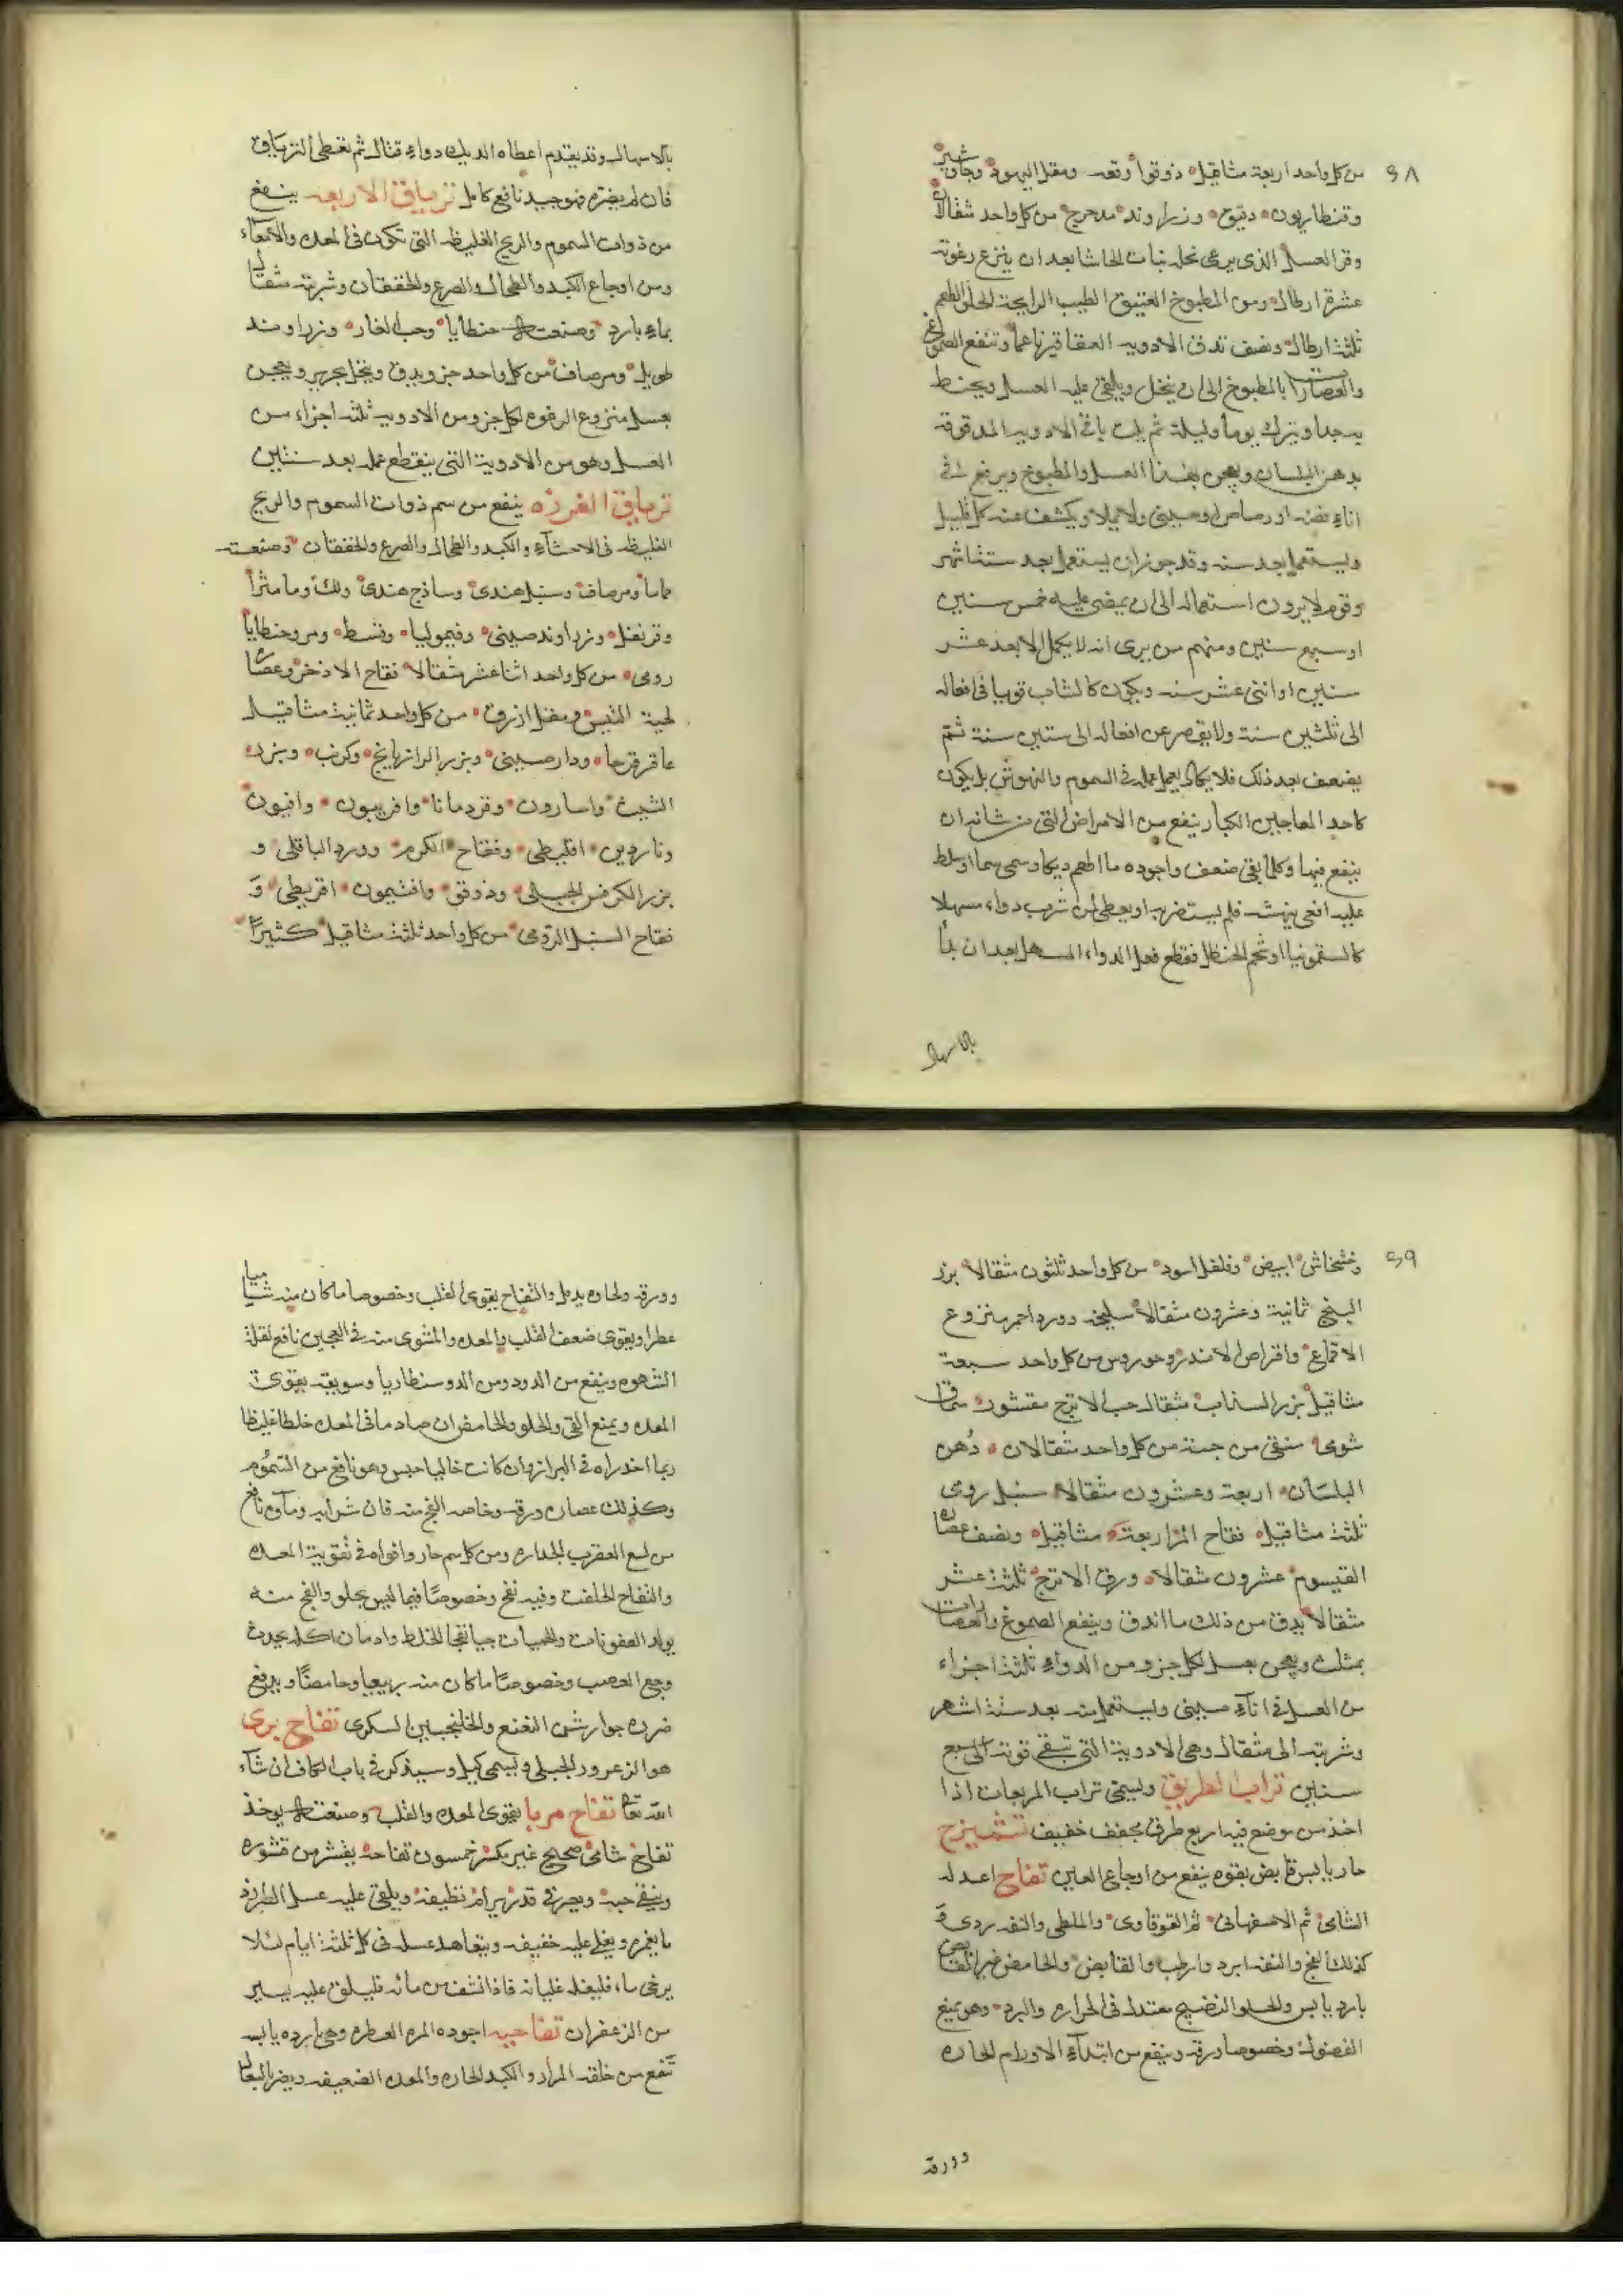 ٩٨
من كل واحد اربعة مثاقيل ذوقوا وقعه ومقل اليهود وجاوشير
وقنطاريون دقيق وزراوند مدحرج من كل واحد مثقالان
وفى العسل الذى يرعى نحله نبات الحاشا بعد ان ينزع رغوته
عشرة ارطال ومن المطبوخ العتيق الطيب الرايحة الحلو الطعم
ثلثة ارطال ونصف تدق الادويه العقاقير ناعما وتنقع الصموغ
والعصارات بالمطبوخ الى ان ينحل ويلقى عليه العسل ويخلط
جيدا ويترك يوما وليلة ثم يلت باقى الادويه المدقوقه
بدهن البلسان ويعجن بهذا العسل والمطبوخ ويرفع فى
اناء فضه او رصاص او صينى ولا يملا ويكشف عنه كل قليل
ويستعمل بعد سنه وقد جوز ان يستعمل بعد ستة اشهر
وقوم لا يرون استعماله الى ان يمضى عليه خمس سنين
او سبع سنين ومنهم من يرى انه لا يكمل الا بعد عشر
سنين او اثنى عشر سنه ويكون كالشاب قويا فى افعاله
الى ثلثين سنة ولا يقصر عن افعاله الى ستين سنة ثم
يضعف بعد ذلك فلا يكاد يعمل عمله فى السموم والنهوش بل يكون
كاحد المعاجين الكبار ينفع من الامراض التى من شانه ان
ينفع فيها وكلما بقى ضعف واجوده ما اطعم ديكا وسقى سما او سلط
عليه افعى ينهشه فلم يستضر به او يعطى لمن شرب دواء مسهلا
كالسقمونيا او شحم الحنظل فقطع فعل الدواء المسهل بعد ان بدأ
بالاسهال
بالاسهال وقد يقدم اعطاه الديك دواء قتال ثم تعطى الترياق
فان لم يضره فهو جيد نافع كامل ترياق الاربعه ينفع
من ذوات السموم والريح الغليظه التى تكون فى المعده والامعاء
ومن اوجاع الكبد والطحال والصرع والخفقان وشربته مثقال
بماء بارد وصنعته جنطايا وحب الغار وزراوند
طويل ومر صاف من كل واحد جزو يدق وينخل بحرير ويعجن
بعسل منزوع الرغوه لكل جزو من الادويه ثلثه اجزاء من
العسل وهو من الادوية التى ينقطع عمله بعد سنتين
ترياق الغرزه ينفع من سم ذوات السموم والريح
الغليظه فى الاحشاء والكبد والطحال والصرع والخفقان وصنعته
ماما ومر صاف وسنبل هندى وساذج هندى ولك وما مثرا
وقرنفل وزراوند صينى وفيموليا وقسط ومر وجنطايا
رومى من كل واحد اثنا عشر مثقالا فقاح الاذخر وعصاره
لحية التيس ومقل ازرق من كل واحد ثمانية مثاقيل
عاقر قرحا ودار صينى وبزر الرازيانج وكرنب وبزر
الشبث واسارون وقردمانا وافربيون وافيون
وناردين اقليطى وفقاح الكرم وورد الباقلى و
بزر الكرفس الجبلى وذوقو وافثيمون اقريطى و
فقاح السنبل الرومى من كل واحد ثلثة مثاقيل كثيرا
٩٩
وخشخاش ابيض وفلفل اسود من كل واحد ثلثون مثقالا بزر
البنج ثمانية وعشرون مثقالا سليخه وورد احمر منزوع
الاقماع واقراص الاندروخورون من كل واحد سبعة
مثاقيل بزر السذاب مثقال حب الاترج مقشور سماق
شومى منقى من حبه من كل واحد مثقالان دهن
البلسان اربعة وعشرون مثقالا سنبل رومى
ثلثة مثاقيل فقاح المر اربعة مثاقيل ونصف عصاره
القيسوم عشرون مثقالا ورق الاترج ثلثة عشر
مثقالا يدق من ذلك ما اندق وينقع الصموغ والعصارات
بمثلث ويعجن بعسل لكل جزو من الدواء ثلثة اجزاء
من العسل فى اناء صينى ويستعمل منه بعد ستة اشهر
وشربته الى مثقال وهى الادوية التى تبقى قوته الى سبع
سنين تراب الطريق ويسمى تراب المربعات اذا
اخذ من موضع فيه اربع طرق مجفف خفيف تشميزج
حار يابس قابض بقوه ينفع من اوجاع العين تفاح اعدله
الشامى ثم الاصفهانى ثم القوقاوى والملطى والتفه ردى و
كذلك الفج والتفه ابرد وارطب والقابض والحامض غير القابض
بارد يابس والحلو النضيج معتدل فى الحراره والبرد وهو يمنع
الفضول وخصوصا ورقه وينفع من ابتداء الاورام الحاره
وورقه
وورقه ولحاوه يدمل والتفاح يقوى القلب وخصوصا ما كان منه شاميا
عطرا ويقوى ضعف القلب والمعده والمشوى منه فى العجين نافع لقلة
الشهوه وينفع من الدود ومن الدوسنطاريا وسويقه يقوى
المعده ويمنع القى والحلو والحامض ان صادما فى المعده خلطا غليظا
ربما احدراه فى البراز وان كانت خاليا حبس وهو نافع من السموم
وكذلك عصاره ورقه وخاصه الفج منه فان شرابه وماوه نافع
من لسع العقرب الجراره ومن كل سم حار واقواه فى تقوية المعده
والتفاح الخلفت وفيه نفخ وخصوصا فيما ليس بحلو والفج منه
يولد العفونات والحميات جيا نفجا الخلط وادمان اكله يحدث
وجع العصب وخصوصا ما كان منه ربيعيا وحامضا ويدفع
ضرره جوارشن النعنع والخلنجبين السكرى تفاح برى
هو الزعرور الجبلى ويسمى كيل وسيذكر فى باب الكاف ان شاء
الله تعا تفاح مربا يقوى المعده والقلب وصنعته يوخذ
تفاح شامى صحيح غير مكسر خمسون تفاحه يقشر من قشوره
وينقى حبه ويصير فى قدر برام نظيفة ويلقى عليه عسل الطبرزد
ما يغمره ويغلى عليه خفيف ويتعاهد عسله فى كل ثلثة ايام لئلا
يرخى ماء فليغله غليانه فاذا نشف من مائه فليلق عليه يسير
من الزعفران تفاحيه اجوده المره العطره وهى بارده يابسه
تنفع من خلفه المرار والكبد الحاره والمعده الضعيفه ويضر بالسعال